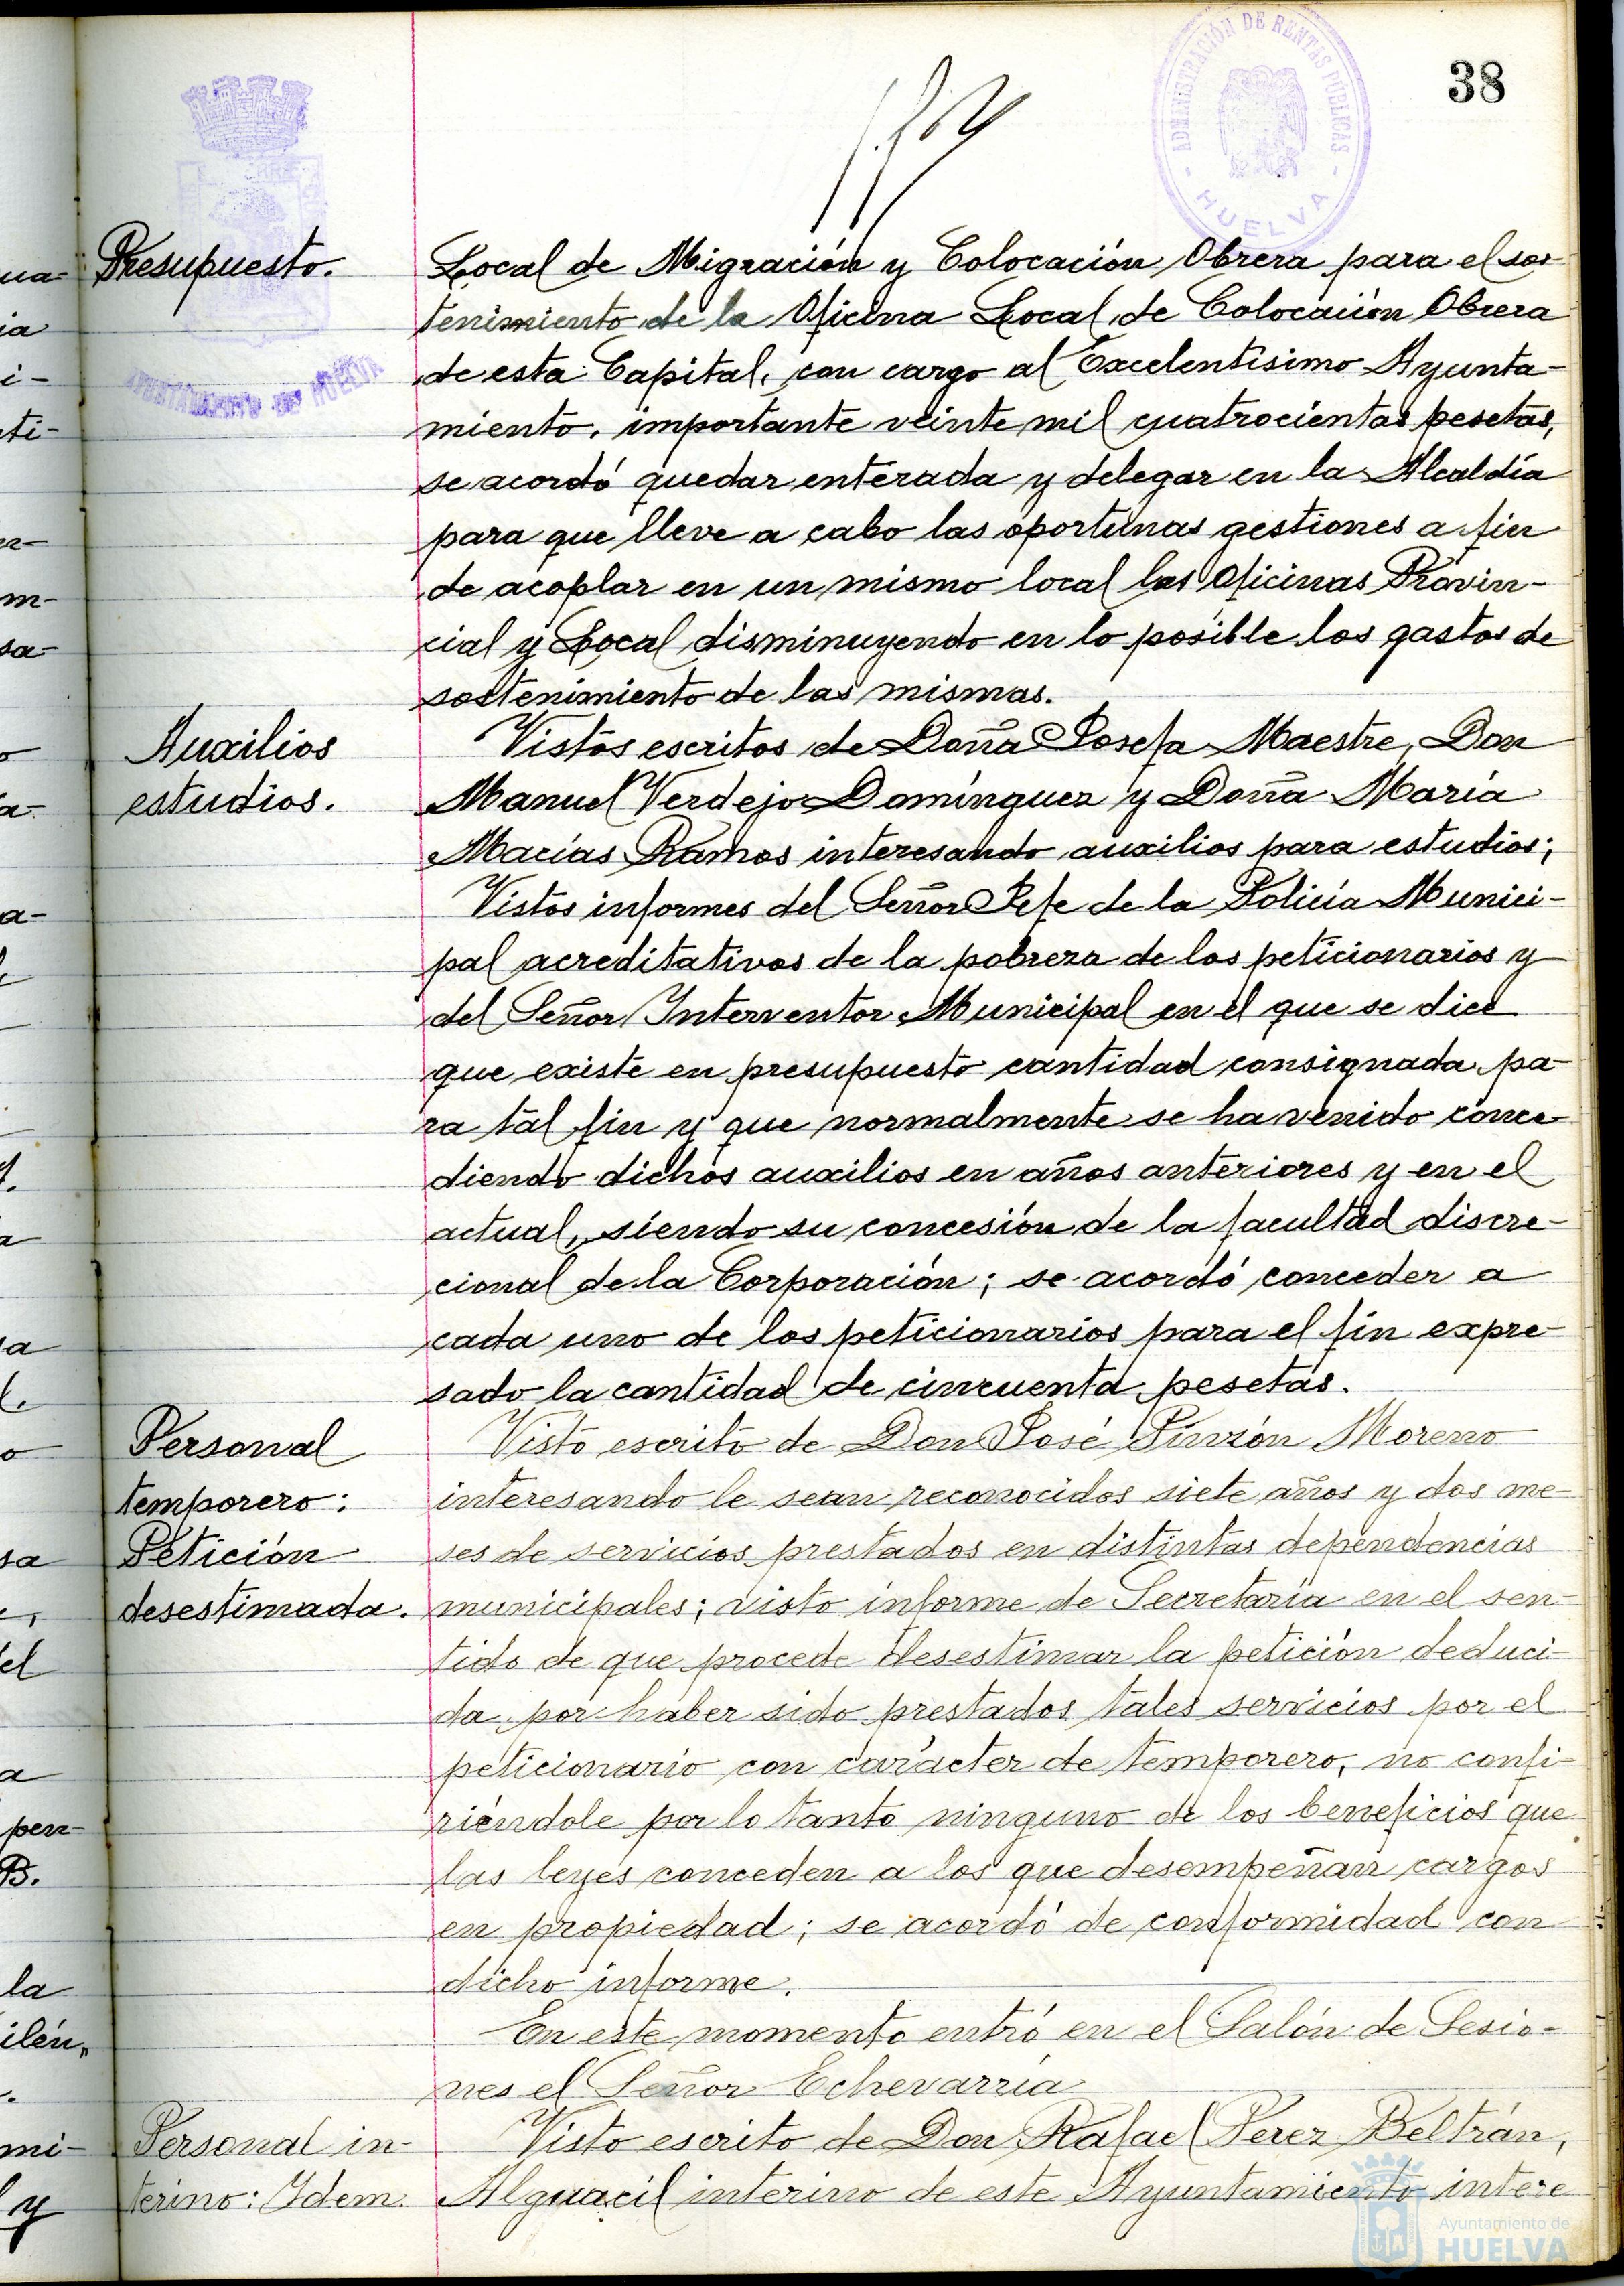 38
ADMINISTRACIÓN DE RENTAS PÚBLICAS
HUELVA
AYUNTAMIENTO DE HUELVA
Presupuesto.
Local de Migración y Colocación Obrera para el sos-
tenimiento de la Oficina Local de Colocación Obrera
de esta Capital, con cargo al Excelentísimo Ayunta-
miento, importante veinte mil cuatrocientas pesetas,
se acordó quedar enterada y delegar en la Alcaldía
para que lleve a cabo las oportunas gestiones a fin
de acoplar en un mismo local las Oficinas Provin-
cial y Local disminuyendo en lo posible los gastos de
sostenimiento de las mismas.
Auxilios
estudios.
Vistos escritos de Doña Josefa Maestre, Don
Manuel Verdejo Domínguez y Doña María
Macías Ramos interesando auxilios para estudios;
Vistos informes del Señor Jefe de la Policía Munici-
pal acreditativos de la pobreza de los peticionarios y
del Señor Interventor Municipal en el que se dice
que existe en presupuesto cantidad consignada pa-
ra tal fin y que normalmente se ha venido conce-
diendo dichos auxilios en años anteriores y en el
actual, siendo su concesión de la facultad discre-
cional de la Corporación; se acordó conceder a
cada uno de los peticionarios para el fin expre-
sado la cantidad de cincuenta pesetas.
Personal
temporero:
Petición
desestimada.
Visto escrito de Don José Pinzón Moreno
interesando le sean reconocidos siete años y dos me-
ses de servicios prestados en distintas dependencias
municipales; visto informe de Secretaría en el sen-
tido de que procede desestimar la petición deduci-
da por haber sido prestados tales servicios por el
peticionario con carácter de temporero, no confi-
riéndole por lo tanto ninguno de los beneficios que
las leyes conceden a los que desempeñan cargos
en propiedad; se acordó de conformidad con
dicho informe.
En este momento entró en el Salón de Sesio-
nes el Señor Echevarría
Personal in-
terino: Idem.
Visto escrito de Don Rafael Perez Beltrán,
Alguacil interino de este Ayuntamiento intere
Ayuntamiento de
HUELVA